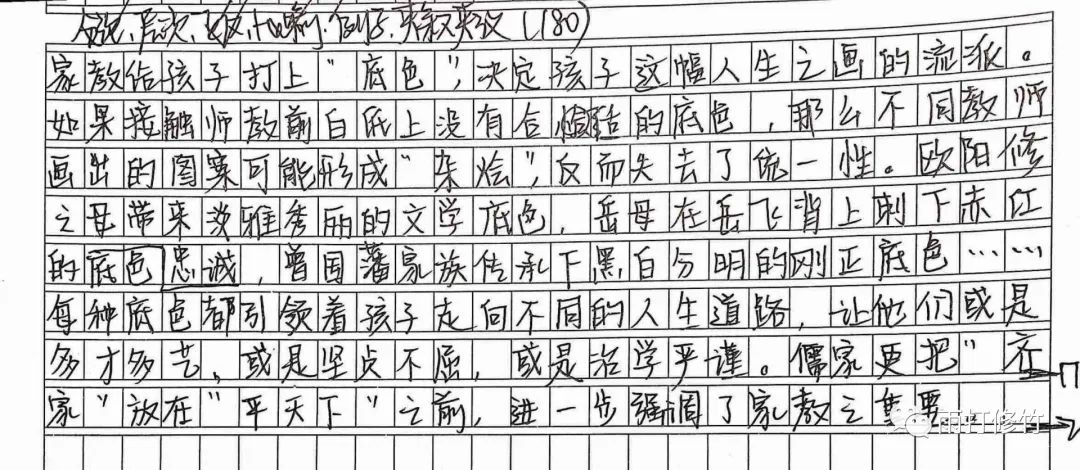 (180)
家教给孩子打上“底色”，决定孩子这幅人生之画的流派。
如果接触师教前白纸上没有合适的底色，那么不同教师
画出的图案可能形成“杂烩”，反而失去了统一性。欧阳修
之母带来淡雅秀丽的文学底色，岳母在岳飞背上刺下赤红
的底色忠诚，曾国藩家族传承下黑白分明的刚正底色……
每种底色都引领着孩子走向不同的人生道路，让他们或是
多才多艺、或是坚贞不屈，或是治学严谨。儒家更把“齐
家”放在“平天下”之前，进一步强调了家教之重要
雨打修竹